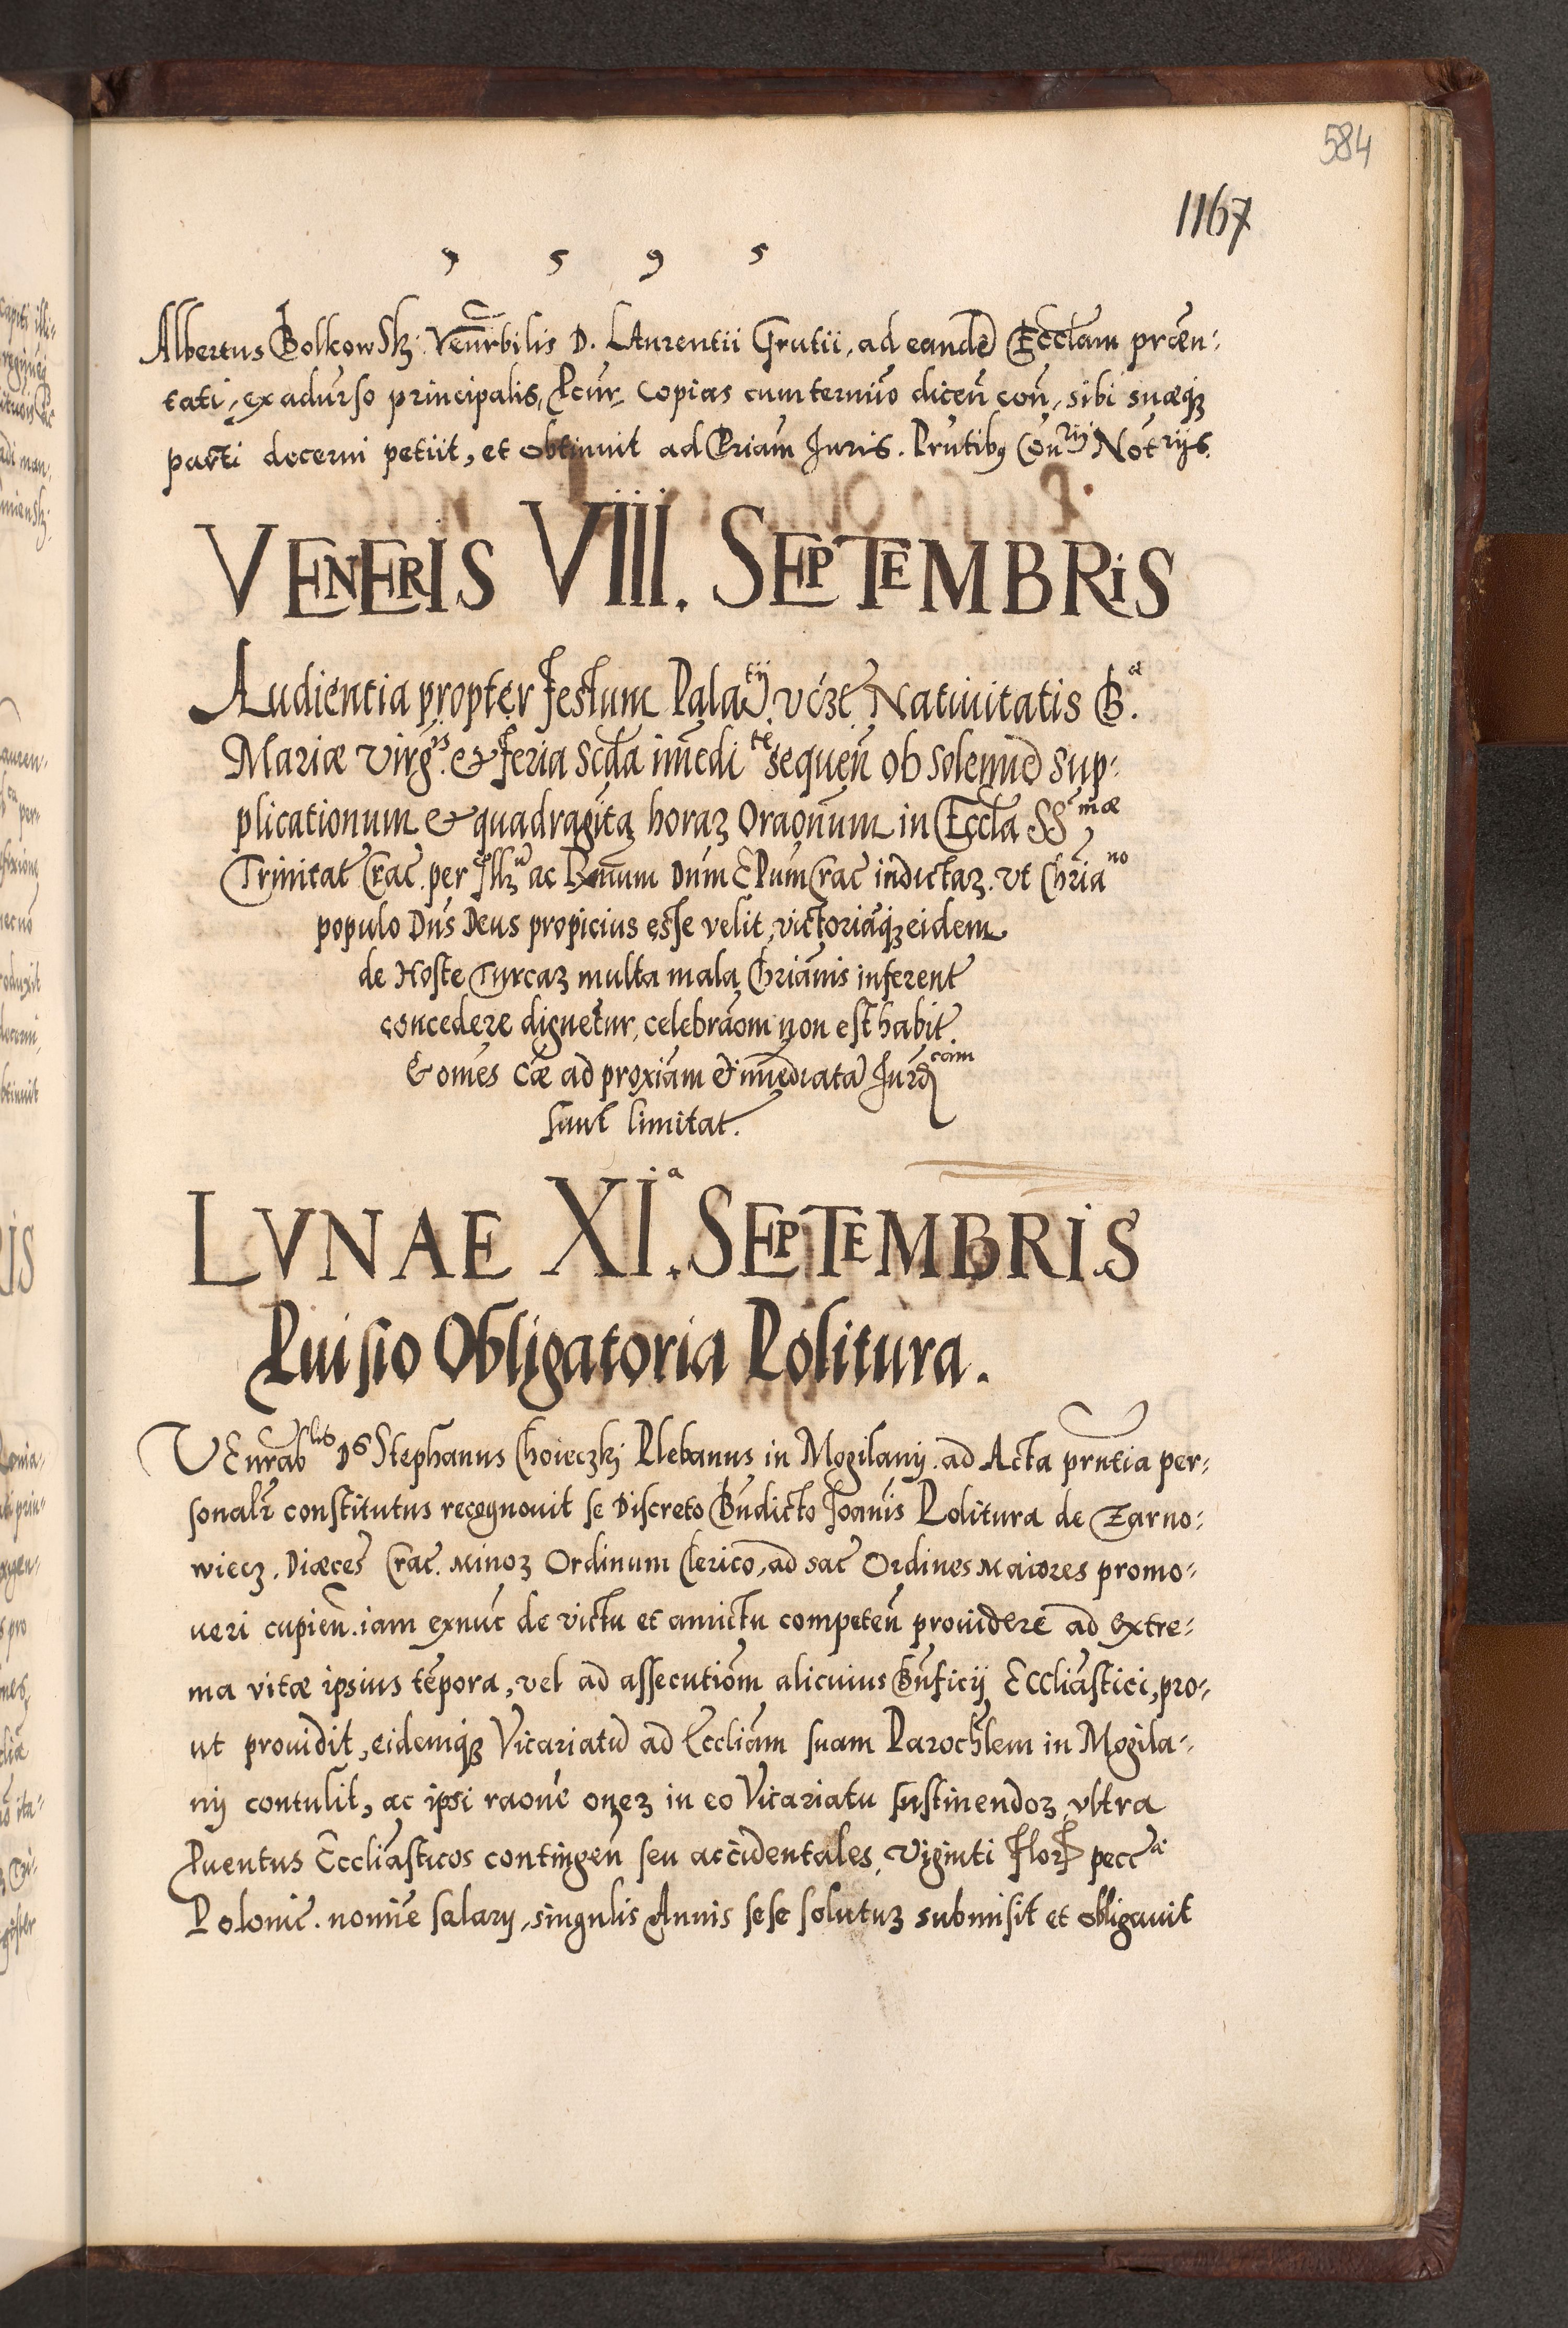 584
1167
1 5 9 5
Albertus Bolkowskj Venrbilis D. Laurentii Grutii, ad eandē Eccl̄am prœn-
tati, ex adūrso principalis, Pcur̄ copias cum termīo dicen̄ con̄, sibi suæqꝫ
parti decerni petiit, et obtinuit ad Priam Juris. Pn̄tibꝰ Con^rij Not^rijs.
VENERIS VIII. SEPTEMBRIS
Audientia propter Festum Pala^tij vꝫt Natiuitatis B^a.
Mariæ Virg^is. & Feria Scd̄a im̄edi^te sequen̄ ob solennē sup-
plicationum & quadraginta horaꝫ Orãonum in Eccl̄a SS^mæ
Trinitat̄ Crac̄. per Illꝫ ac Rm̄um Dn̄m Ep̄um Crac̄ indictaꝫ. vt Chr̄ia^no
populo Dn̄s Deus propicius esse velit, victoriāqꝫ eidem
de Hoste Turcaꝫ multa mala Chrianis inferent̄
concedere dignetur, celebrãom non est habit̄.
& om̄es cæ ad proxiam & im̄ediatā Jurd^cam
sunt limitat̄.
LVNAE XI^a. SEPTEMBRIS
Puisio Obligatoria Politura.
VEnrab^lis D^s Stephanus Choieczkj Plebanus in Mogilany. ad Acta pn̄tia per-
sonalr̄ constitutus recognouit se Discreto Bn̄dicto Joannis Politura de Zarno-
wiecz. Diæces̄ Crac̄. Minoꝫ Ordinum Clerico, ad sac̄ Ordines Maiores promo-
ueri cupien̄. iam exnūc de victu et amictu competen̄ prouidere ad extre-
ma vitæ ipsius tēpora, vel ad assecutiōm alicuius Bn̄ficij Eccl̄iastici, pro-
ut prouidit, eidemqꝫ Vicariatū ad Eccl̄iam suam Paroch̄lem in Mogila-
nij contulit, ac ipsi rãone oneꝫ in eo Vicariatu sustinendoꝫ, vltra
Puentus Eccl̄iasticos contingen̄ seu accidentales, Viginti Flor̄ pecc^ā
Polonic̄. nomīe salarij, singulis Annis sese solutuꝫ submisit et obligauit